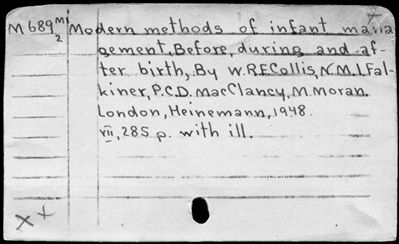 M 689 mi 2 Modern methods of infant mana
gement, Before, during and af-
ter birth, By W.R.F. Collis, N.M.I. Fal-
kiner, P.C.D. MacClancy, M. Moran.
London, Heinemann, 1948.
VII, 285 p. with ill.